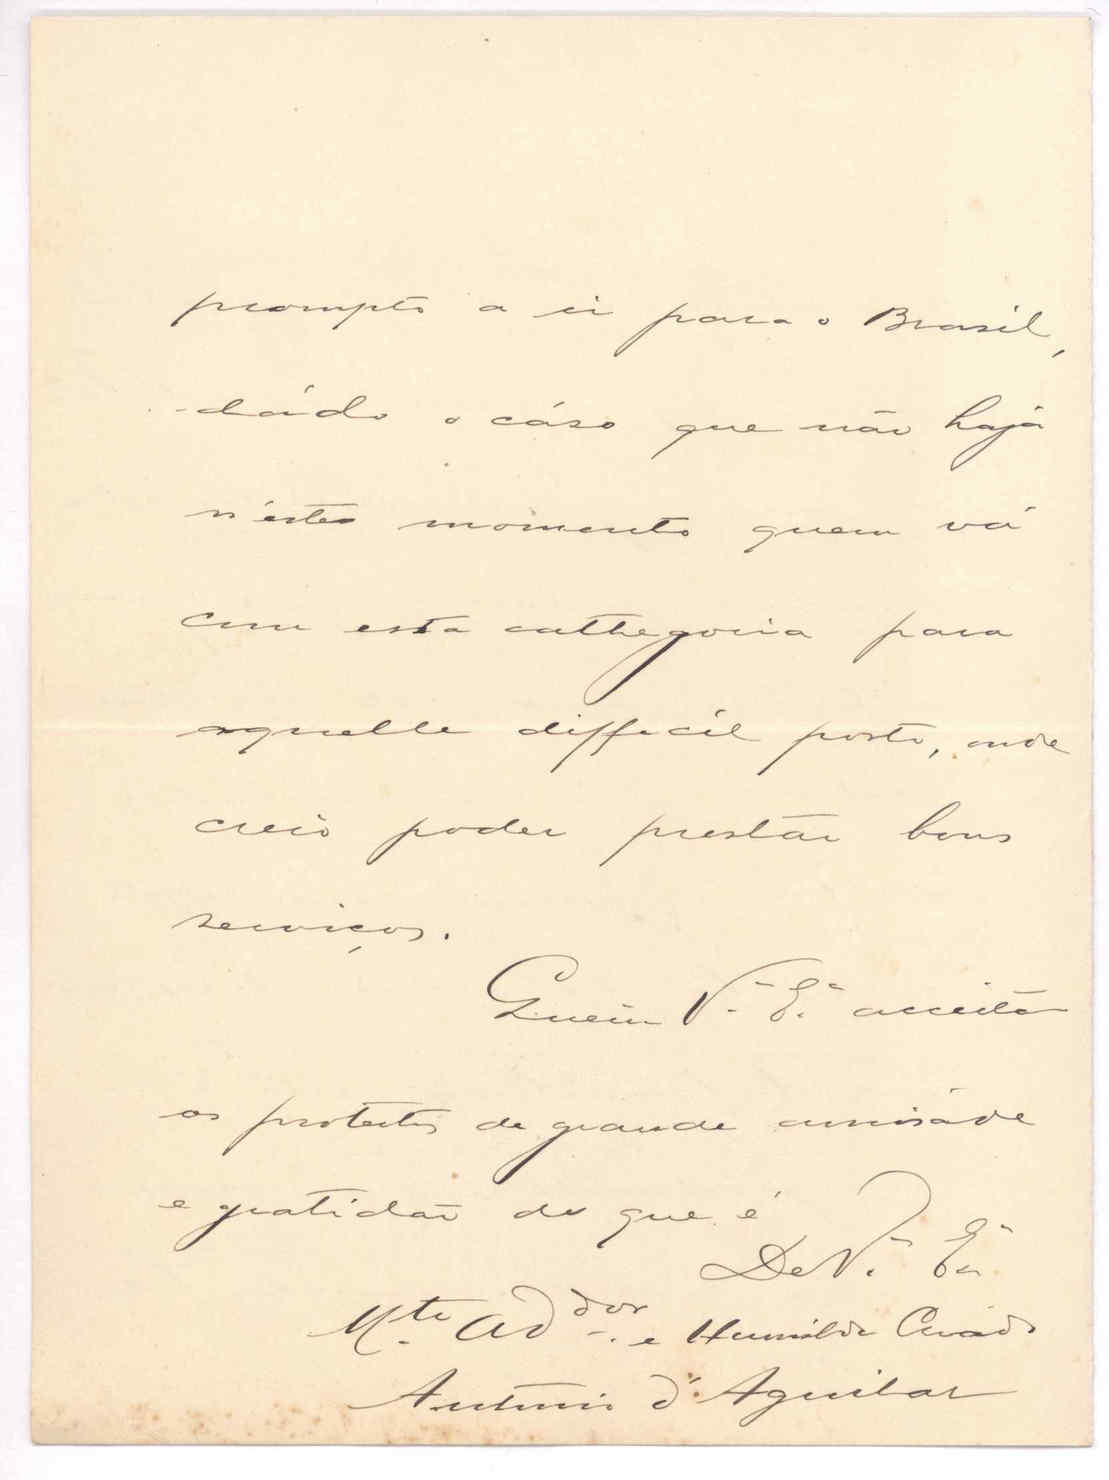 prompto a ir para o Brasil,
dádo o cáso que não hajá
n'éste momento quem vá
com esta cathegoria para
aquelle difficil posto, onde
creio poder prestár bons
serviços.
Queira V.ª E.ª acceitar
os protestos de grande amisáde
e gratidão do que é
De V.ª Eª
M.te Ad.dor e Humilde Criádo
Antonio d'Aguilar